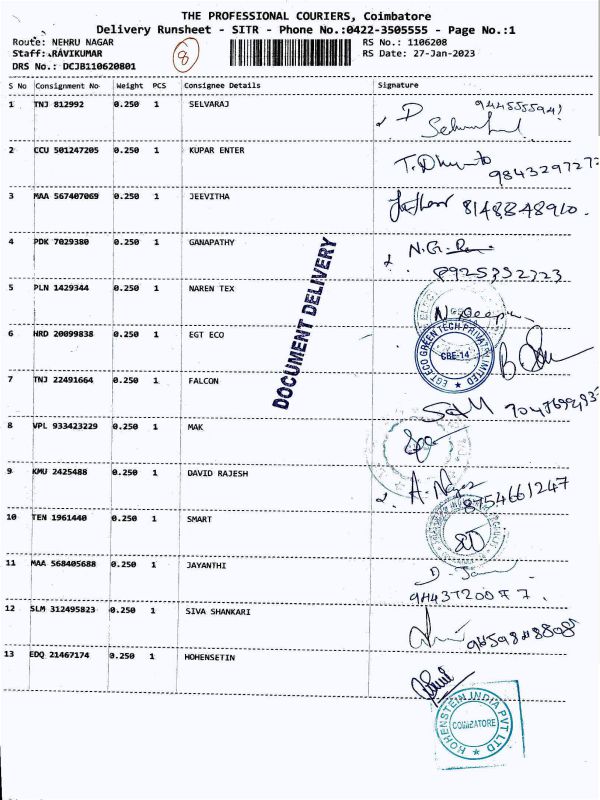 THE PROFESSIONAL COURIERS, Coimbatore
Delivery Runsheet - SITR - Phone No.:0422-3505555 - Page No.:1
Route: NEHRU NAGAR
RS No.: 1106208
Staff: RAVIKUMAR
8
RS Date: 27-Jan-2023
DRS No.: DCJB110620801
S No Consignment No Weight PCS Consignee Details Signature
1 TNJ 812992 0.250 1 SELVARAJ
2 CCU 501247205 0.250 1 KUPAR ENTER
3 MAA 567407069 0.250 1 JEEVITHA
8148348910.
4 PDK 7029380 0.250 1 GANAPATHY
N.G.
8925352323
5 PLN 1429344 0.250 1 NAREN TEX
DOCUMENT DELIVERY
6 HRD 20099838 0.250 1 EGT ECO
EGT ECO GREEN TECH PRIVATE LIMITED
CBE-14
7 TNJ 22491664 0.250 1 FALCON
8 VPL 933423229 0.250 1 MAK
9 KMU 2425488 0.250 1 DAVID RAJESH
8754661247
10 TEN 1961440 0.250 1 SMART
11 MAA 568405688 0.250 1 JAYANTHI
12 SLM 312495823 0.250 1 SIVA SHANKARI
13 EDQ 21467174 0.250 1 HOHENSETIN
HOHENSTEIN INDIA PVT LTD
COIMBATORE